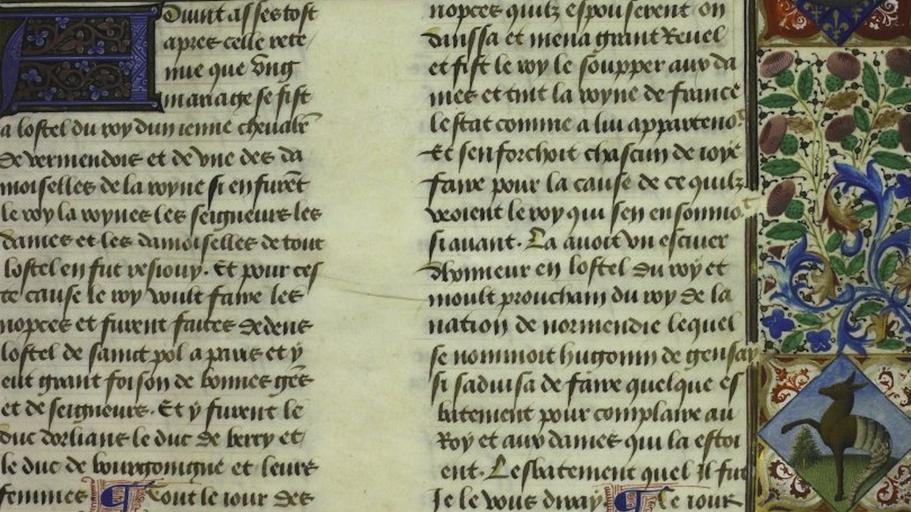 Aduint asses tost
apres celle rete
nue que vng
mariage se fist
a lostel du roy dun ienne cheualr̄
de vermendois et de vne des da
moiselles de la royne si en furēt
le roy la royne les seigneurs les
dames et les damoiselles de tout
lostel en fut resiouy. Et pour ces
te cause le roy voult faire les
nopces et furent faictes dedens
lostel de sainct pol a paris et y
eut grant foison de bonnes gēs
et de seigneurs. Et y furent le
duc dorlians le duc de berry et
le duc de bourgongne et leurs
femmes Tout le iour des
nopces quilz espouserent on
danssa et mena grant Reuel
et fist le roy le soupper aux da
mes et tint la royne de france
lestat comme a lui appartenoit
Et sen forchoit chascun de ioye
faire pour la cause de ce quilz
veoient le roy qui sen ensonnioit
si auant. La auoit vn escuier
dhonneur en lostel du roy et
moult prouchain du roy de la
nation de normendie lequel
se nommoit hugonin de gensay
si saduisa de faire quelque es
batement pour complaire au
Roy et aux dames qui la estoi
ent. Lesbatement quel il fut
Je le vous diray Le iour